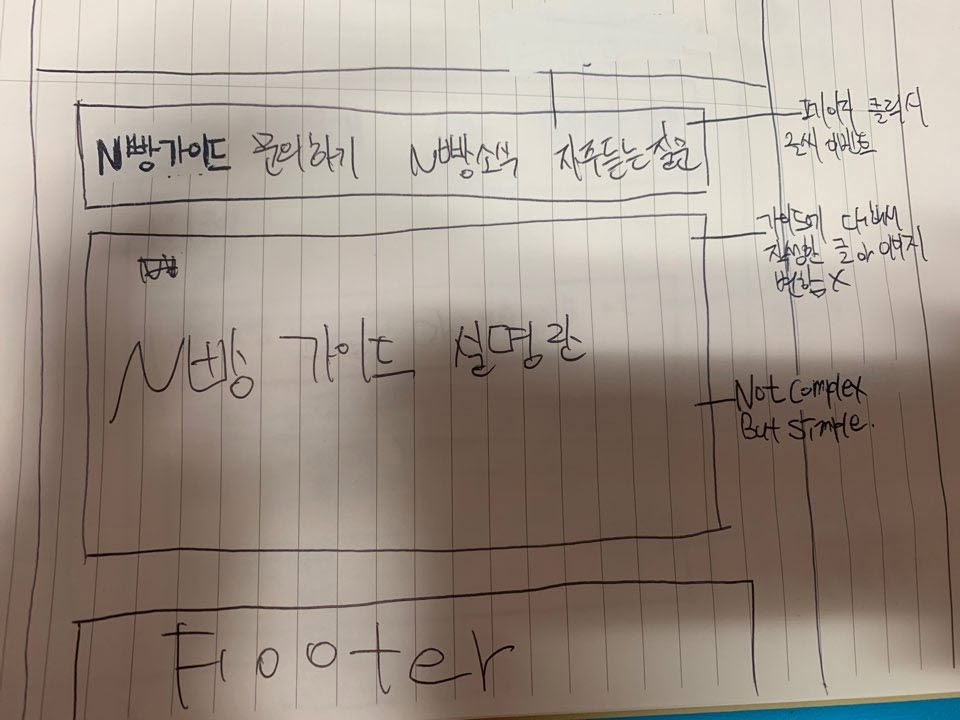 N빵가이드 문의하기 N빵소식 자주듣는질문
페이지 클릭시
글씨 이벤트
가이드에 대해서
작성한 글과 이미지
변함 X
N빵 가이드 설명란
Not complex
But simple.
Footer